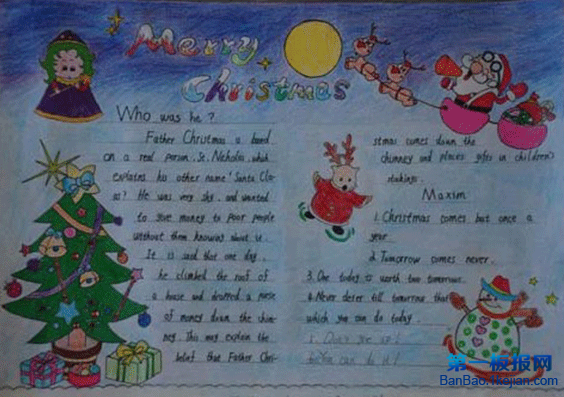 Merry
Christmas
Who was he?
Father Christmas is based
on a real person, St. Nicholas, which
explains his other name 'Santa Cla-
us'? He was very shy and wanted
to give money to poor people
without them knowing about it.
It is said that one day,
he climbed the roof of
a house and dropped a purse
of money down the chim-
ney. This may explain the
belief that Father Chri-
stmas comes down the
chimney and places gifts in children's
stockings.
Maxim
1. Christmas comes but once a
year
2. Tomorrow comes never.
3. One today is worth two tomorrows.
4. Never deter till tomorrow that
which you can do today.
1. Don't give up!
can do it!
第一板报网
BanBao.Ttejian.com